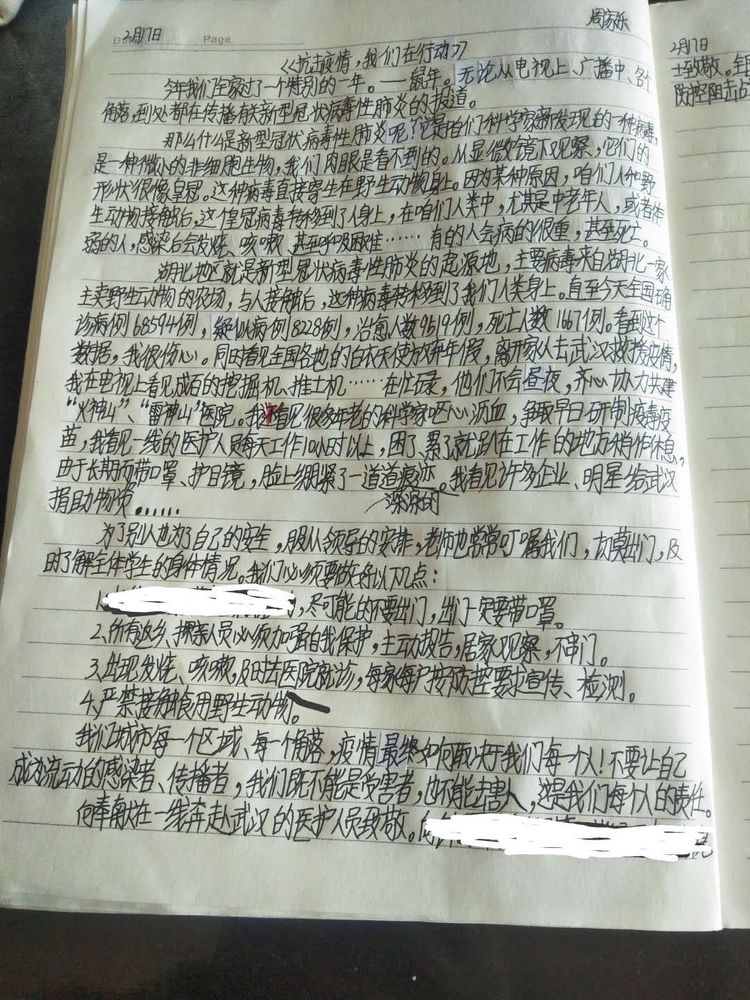 周家乐
2月17日
Page
2月17日
《抗击疫情，我们在行动》
今年我们全家过了个特别的一年。——鼠年。无论从电视上、广播中、各个
角落，到处都在传播有关新型冠状病毒性肺炎的报道。
那么什么是新型冠状病毒性肺炎呢？它是咱们科学家新发现的一种病毒，
是一种微小的非细胞生物，我们肉眼是看不到的。从显微镜下观察，它们的
形状很像皇冠。这种病毒直接寄生在野生动物身上。因为某种原因，咱们人和野
生动物接触后，这个皇冠病毒转移到了人身上，在咱们人类中，尤其是中老年人，或者体
弱的人，感染后会发烧、咳嗽、甚至呼吸困难……有的人会病的很重，甚至死亡。
湖北地区就是新型冠状病毒性肺炎的起源地，主要病毒来自湖北一家
主卖野生动物的农场，与人接触后，这种病毒转移到了我们人类身上。直至今天全国确
诊病例68594例，疑似病例8228例，治愈人数9619例，死亡人数1667例。看到这个
数据，我很伤心。同时看见全国各地的白衣天使放弃年假，离开家人去武汉救援疫情，
我在电视上看见成百的挖掘机、推土机……在忙碌，他们不会昼夜，齐心协力共建
“火神山”、“雷神山”医院。我还看见很多年老的科学家呕心沥血，争取早日研制病毒疫
苗，我看见一线的医护人员每天工作10小时以上，困了、累了就趴在工作的地方稍作休息，
由于长期而带口罩、护目镜，脸上绷紧了一道道痕迹。我看见许多企业、明星给武汉
深深的
捐助物资……
为了别人也为了自己的安全，服从领导的安排，老师也常常叮嘱我们，切莫出门，及
时了解全体学生的身体情况。我们必须要做好以下几点：
1.
，尽可能的不要出门，出门一定要带口罩。
2.所有返乡、探亲人员必须加强自我保护，主动报告，居家观察，不串门。
3.出现发烧、咳嗽，及时去医院就诊，每家每户按防控要求宣传、检测。
4.严禁接触食用野生动物。
我们城市每一个区域、每一个角落，疫情最终如何取决于我们每一个人！不要让自己
成为流动的感染者、传播者，我们既不能是受害者，也不能去害人，这是我们每个人的责任。
向奉献在一线奔赴武汉的医护人员致敬。向
士致敬。全
防控阻击占